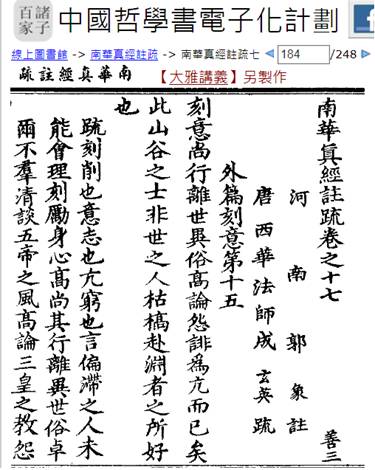 諸子百家
中國哲學書電子化計劃
線上圖書館 -> 南華真經註疏 -> 南華真經註疏七 184 /248
南華真經註疏
【大雅講義】另製作
南華眞經註疏卷之十七 善三
河南郭象註
唐西華法師成玄英疏
外篇刻意第十五
刻意尚行離世異俗髙論怨誹為亢而已矣
此山谷之士非世之人枯槁赴淵者之所好
也
疏刻削也意志也亢窮也言偏滯之人未
能會理刻勵身心髙尚其行離異世俗卓
爾不羣清談五帝之風髙論三皇之教怨